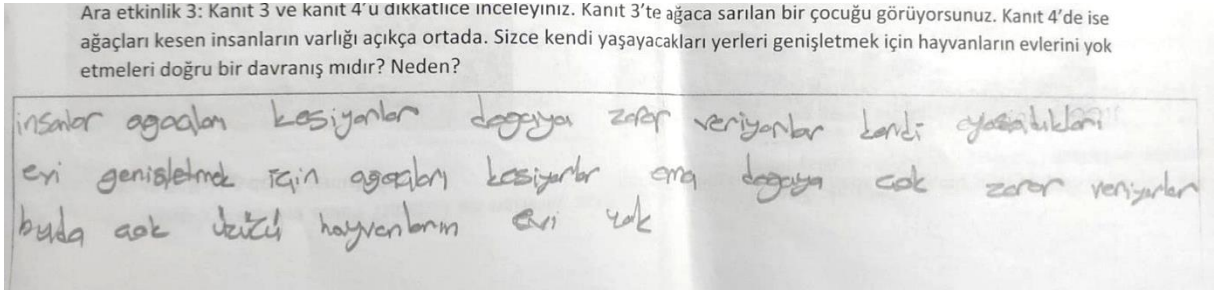 Ara etkinlik 3: Kanıt 3 ve kanıt 4'ü dikkatlice inceleyiniz. Kanıt 3'te ağaca sarılan bir çocuğu görüyorsunuz. Kanıt 4'de ise
ağaçları kesen insanların varlığı açıkça ortada. Sizce kendi yaşayacakları yerleri genişletmek için hayvanların evlerini yok
etmeleri doğru bir davranış mıdır? Neden?
insanlar agaçları kesiyorlar dogaya zarar veriyorlar kendi yaşadıkları
evi genişletmek için agaçları kesiyorlar ama dogaya çok zarar veriyorlar
buda çok üzücü hayvanların evi yok